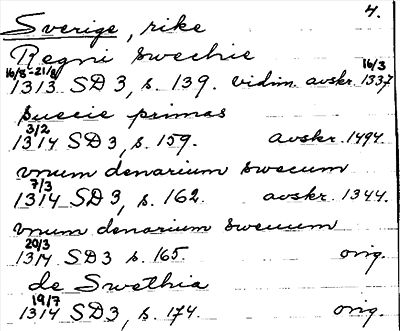 Sverige, rike 4.
Regni swechie
16/8-21/8 16/3
1313 SD 3, s. 139. vidim. avskr. 1337
suecie primas
3/2
1314 SD 3, s. 159. avskr. 1494.
vnum denarium swecum
7/3
1314 SD 3, s. 162. avskr. 1344.
vnum denarium swecum
20/3
1314 SD 3 s. 165. orig.
de Swethia
19/7
1314 SD 3, s. 174. orig.